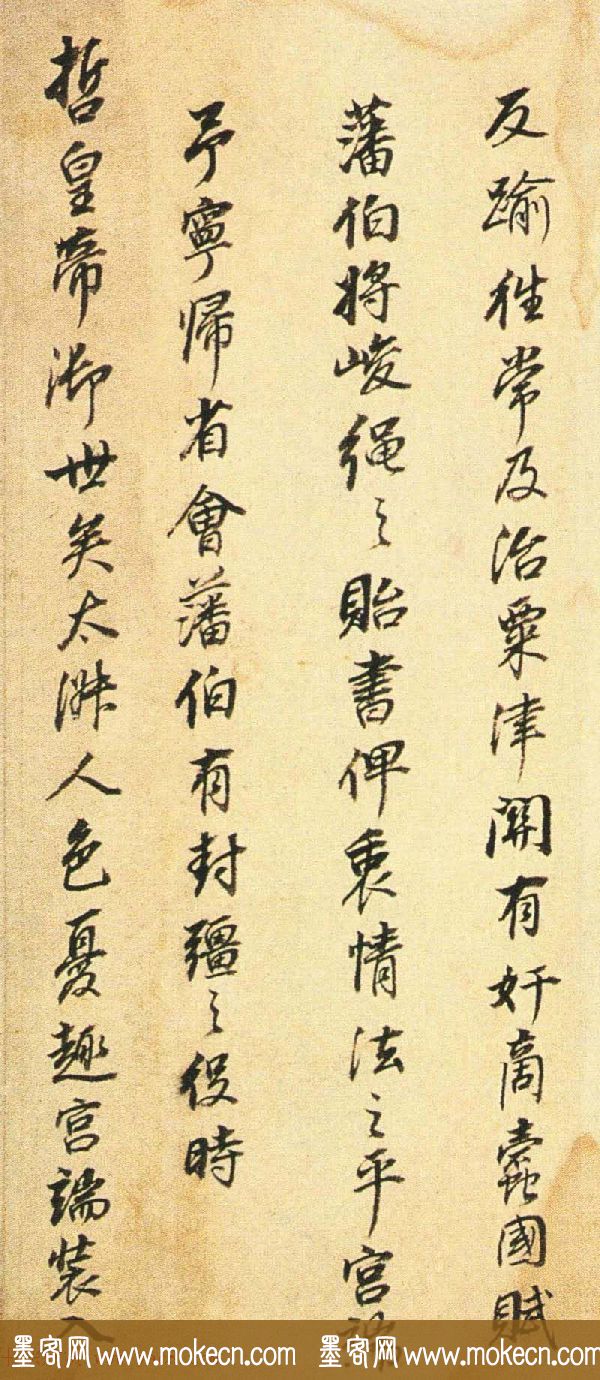 反踰往常及治粟津關有奸商蠹國賦
藩伯將峻繩之貽書俾衷情法之平宮
予寧歸省會藩伯有封疆之役時
哲皇帝御世矣太淑人色憂趣宮端裝入
墨客网 www.mokecn.com 墨客网 www.mokecn.com